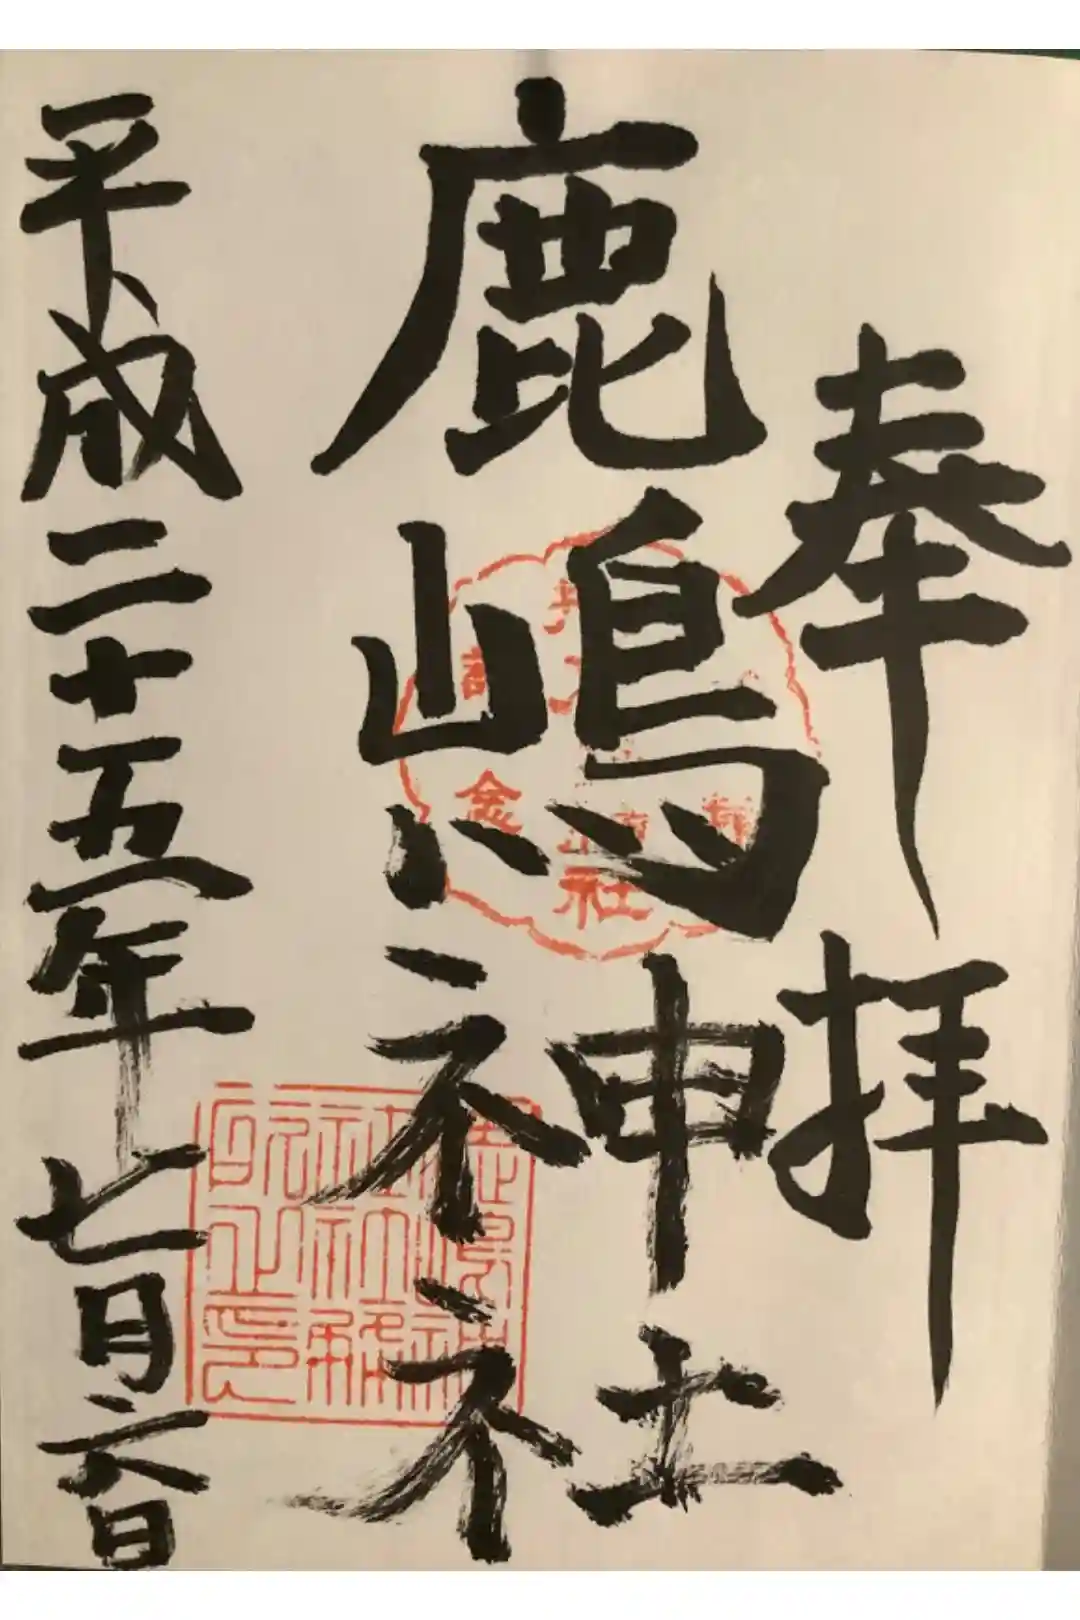 奉拝
鹿嶋神社
平成二十五年七月六日
金
社